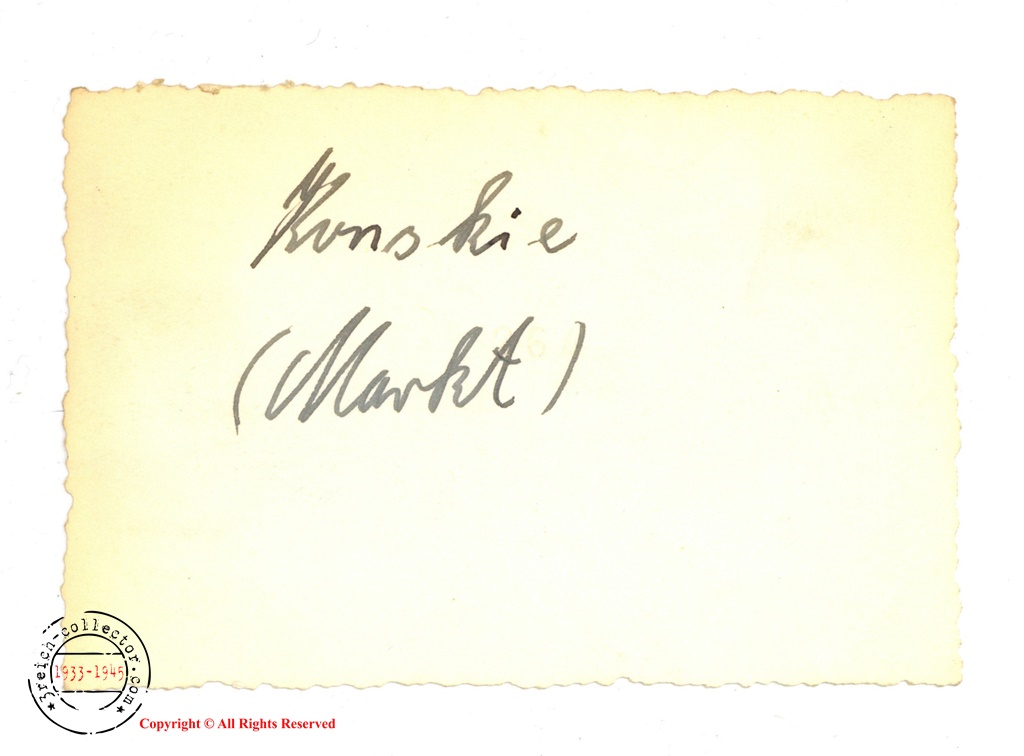 Konskie
(Markt)
3reich-collector.com
1933-1945
Copyright © All Rights Reserved